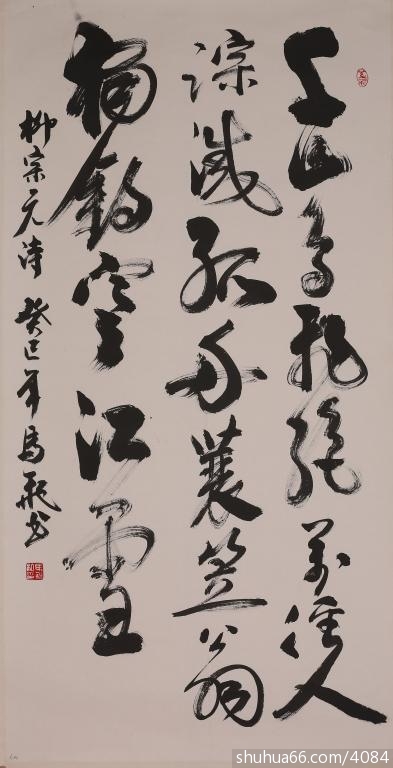 千山鸟飛絶万徑人
踪滅孤舟蓑笠翁
獨釣寒江雪
柳宗元诗 癸巳年馬书
shuhua66.com/4084